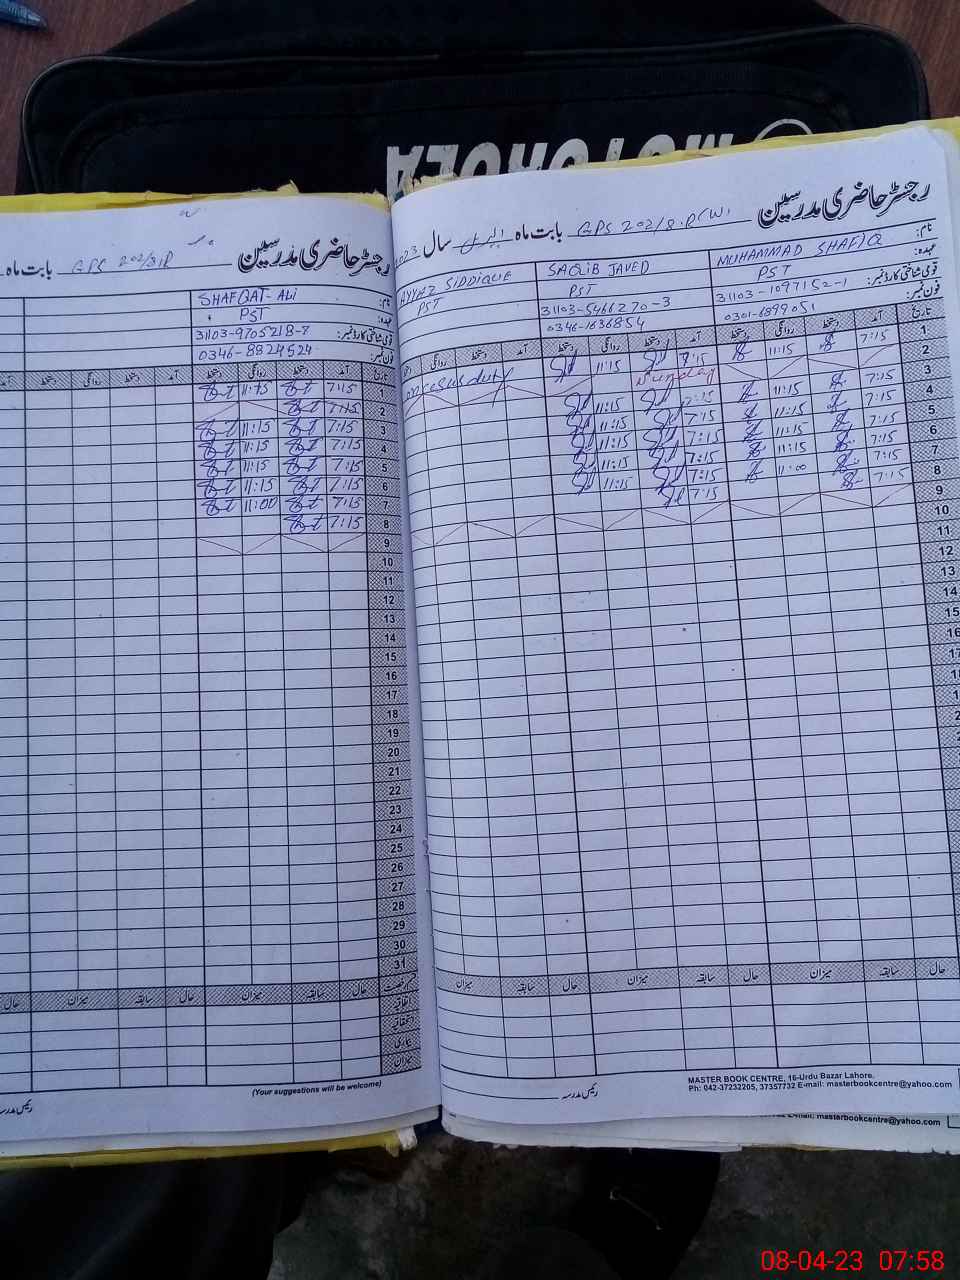 MOTOROLA
رجسٹر حاضری مدرسین
بابت ماہ GPS 202/8.R(W) اپریل سال 2023
نام: MUHAMMAD SHAFIQ
SAQIB JAVED
AYYAZ SIDDIQUE
عہدہ: PST
PST
PST
قومی شناختی کارڈ نمبر: 31103-1097152-1
31103-5466270-3
فون نمبر: 0301-6899051
0346-1636854
تاریخ آمد دستخط روانگی دستخط آمد دستخط روانگی دستخط آمد دستخط روانگی
1 7:15 11:15 7:15 11:15
2 Sunday
3 7:15 11:15 7:15 11:15
4 7:15 11:15 7:15 11:15
5 7:15 11:15 7:15 11:15
6 7:15 11:15 7:15 11:15
7 7:15 11:00 7:15 11:15
8 7:15 7:15
9
10
11
12
13
14
15
16
17
18
19
حال سابقہ میزان حال سابقہ میزان
رئیس مدرسہ
MASTER BOOK CENTRE, 16-Urdu Bazar Lahore.
Ph: 042-37232205, 37357732 E-mail: masterbookcentre@yahoo.com
E-mail: masterbookcentre@yahoo.com
رجسٹر حاضری مدرسین
بابت ماہ GPS 202/8.R
نام: SHAFQAT ALI
عہدہ: PST
قومی شناختی کارڈ نمبر: 31103-9705218-7
فون نمبر: 0346-8824524
تاریخ آمد دستخط روانگی دستخط آمد دستخط روانگی دستخط آمد
1 7:15 11:15
2 7:15
3 7:15 11:15
4 7:15 11:15
5 7:15 11:15
6 7:15 11:15
7 7:15 11:00
8 7:15
9
10
11
12
13
14
15
16
17
18
19
20
21
22
23
24
25
26
27
28
29
30
31
حال سابقہ میزان حال سابقہ میزان حال
اتفاقیہ
استحقاقیہ
بیماری
میزان
(Your suggestions will be welcome)
رئیس مدرسہ
08-04-23 07:58